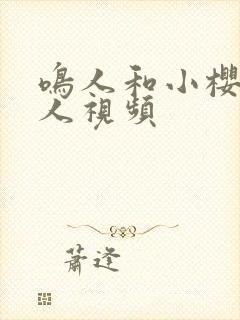 鳴人和小櫻
人視頻
蕭逢